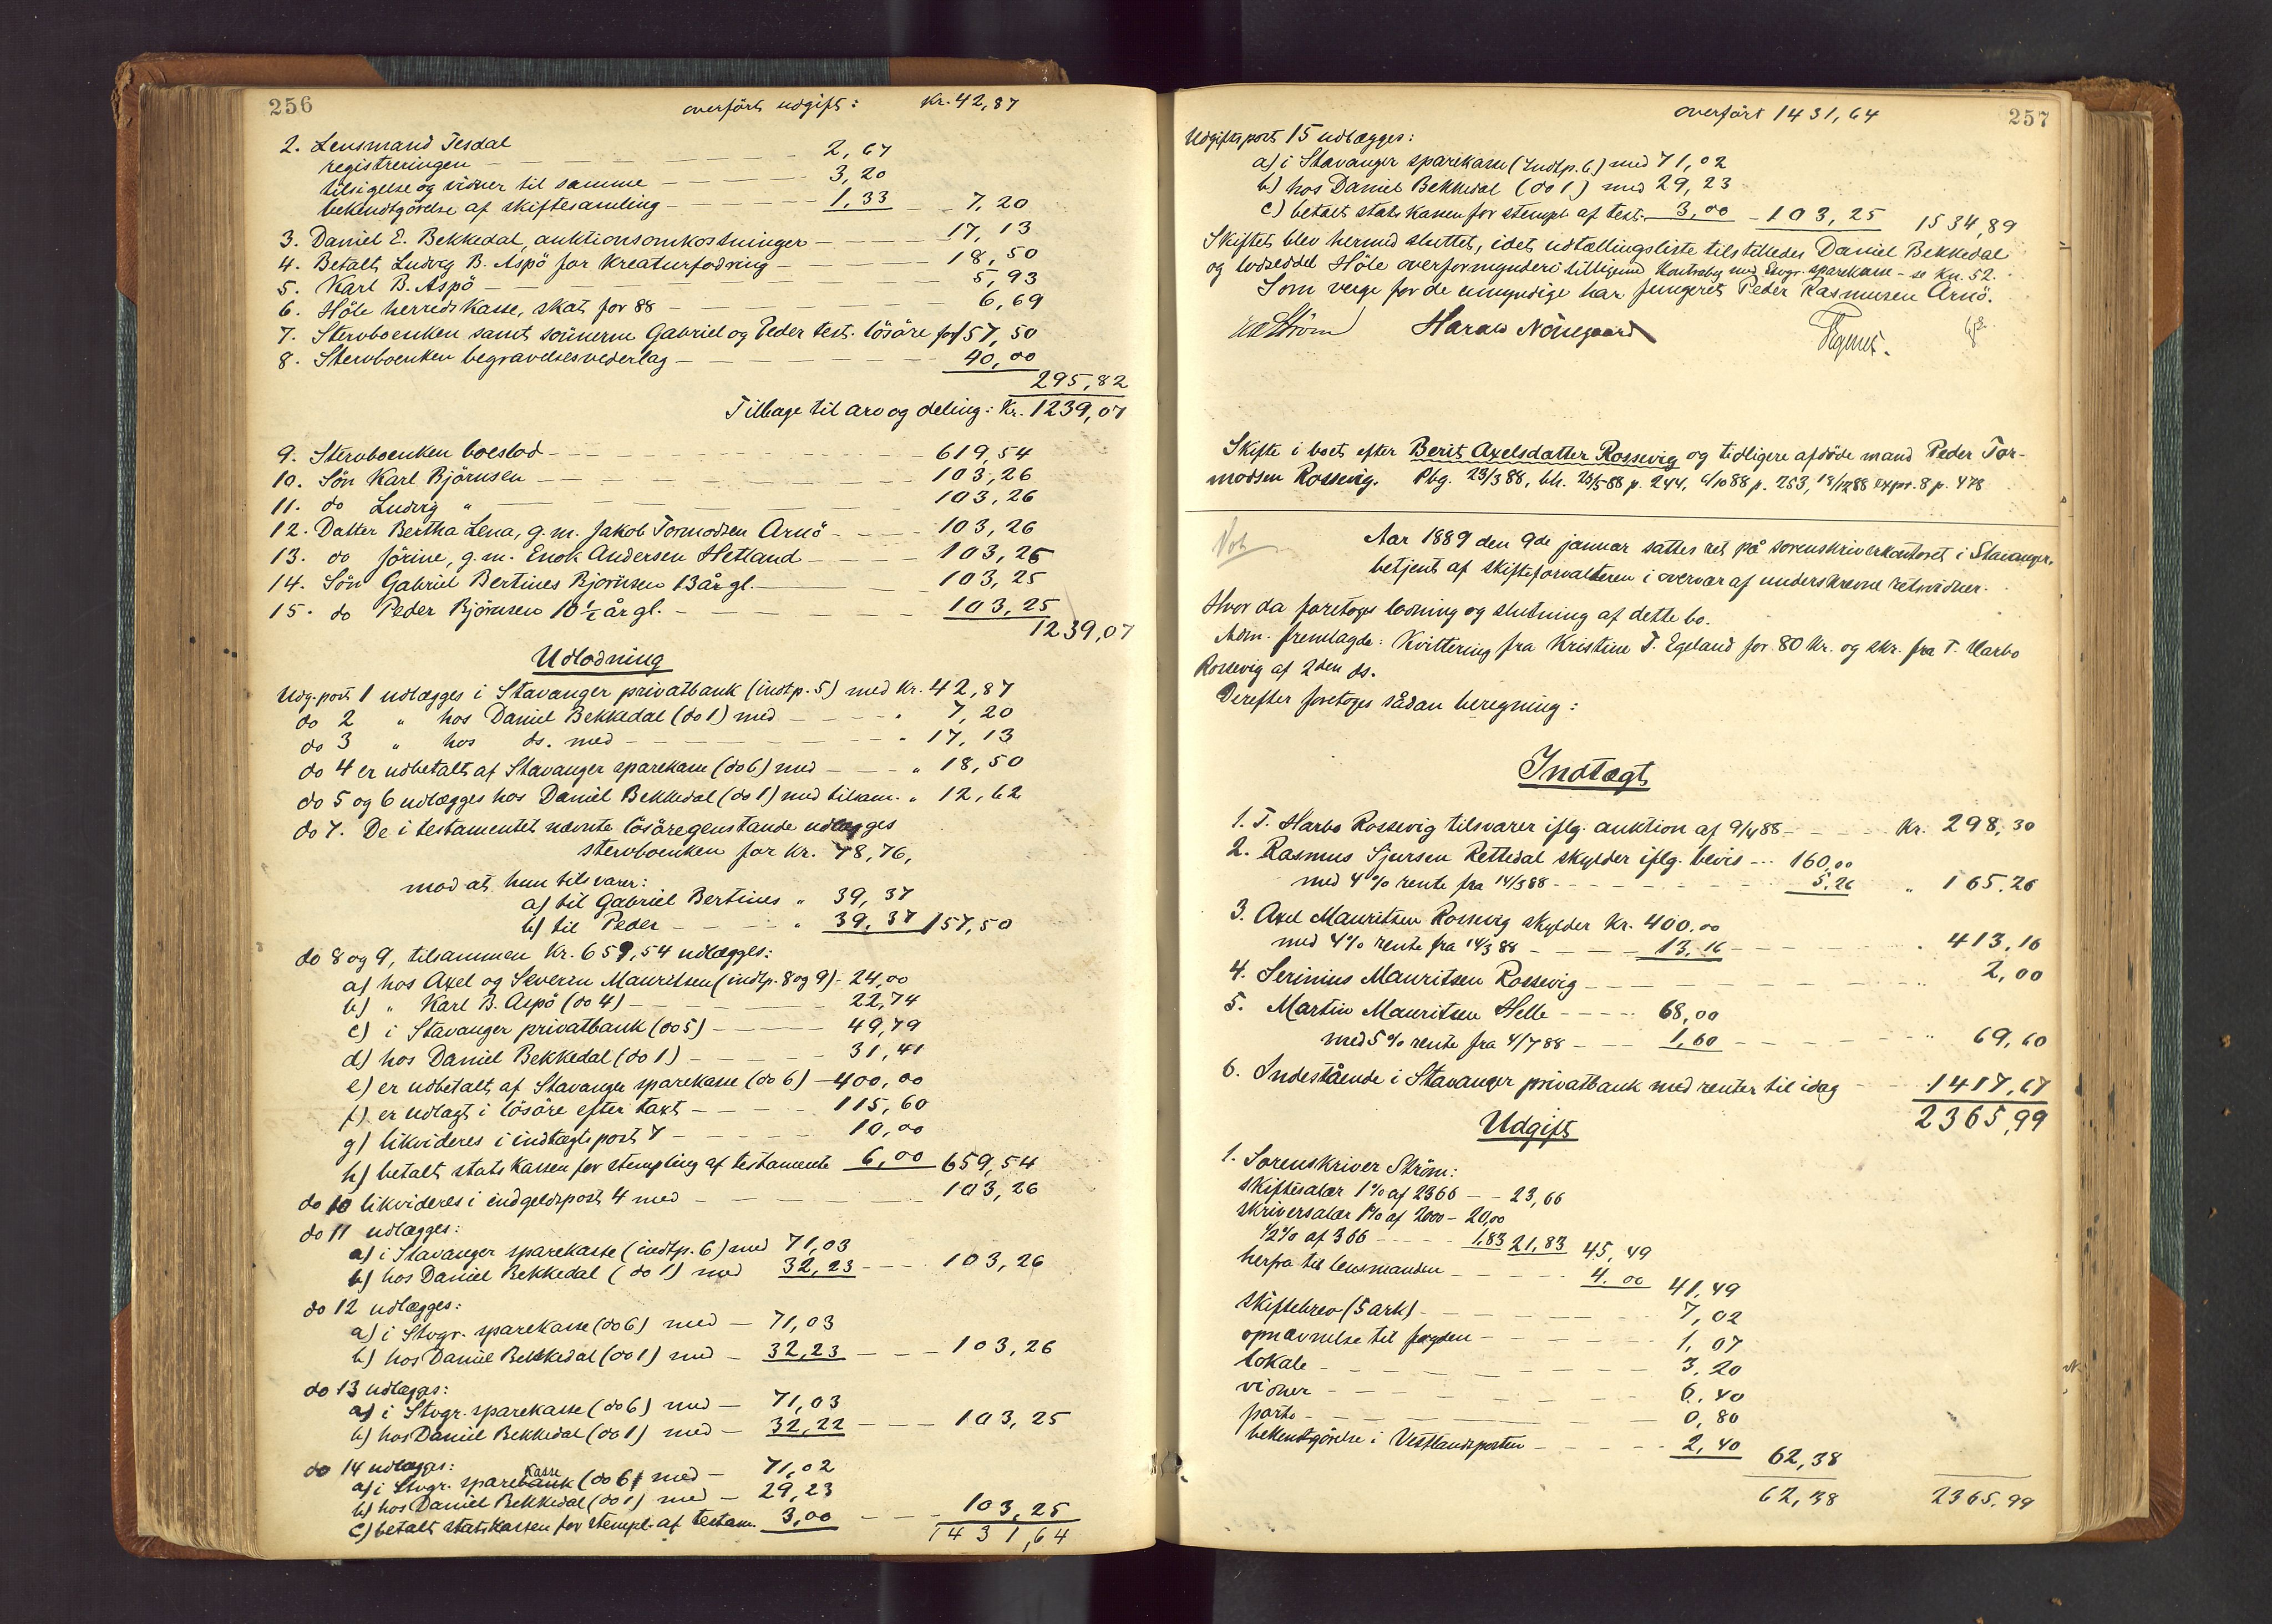 256
overført udgift: Kr. 42,87
2. Lensmand Tesdal
registreringen — 2,67
tilsigelse og vidner til samme — 3,20
bekendtgörelse af skiftesamling — 1,33 7,20
3. Daniel E. Bekkedal, auktionsomkostninger — 17,13
4. Betalt Ludvig B. Aspö for kreaturfodring — 18,50
5. Karl B. Aspö — 5,93
6. Höle herredskasse, skat for 88 — 6,69
7. Stervboenken samt sönnerne Gabriel og Peder test. lösöre for 157,50
8. Stervboenken begravelsesvederlag — 40,00
295,82
Tilbage til arv og deling: Kr. 1239,07
9. Stervboenken boeslod — 619,54
10. Sön Karl Björnsen — 103,26
11. do Ludvig " — 103,26
12. Datter Bertha Lena, g.m. Jakob Tormodsen Arnö — 103,26
13. do Jörine, g.m. Enok Andersen Hetland — 103,25
14. Sön Gabriel Bertines Bjørnsen 13 år gl. — 103,25
15. do Peder Björnsen 10 1/2 år gl. — 103,25
1239,07
Udlodning
Udg. post 1 udlægges i Stavanger privatbank (indtp. 5) med Kr. 42,87
do 2 " hos Daniel Bekkedal (do 1) med — " 7,20
do 3 " hos ds. med — " 17,13
do 4 er udbetalt af Stavanger sparekasse (do 6) med — " 18,50
do 5 og 6 udlægges hos Daniel Bekkedal (do 1) med tilsam. " 12,62
do 7. De i testamentet nævnte lösöregenstande udlægges
stervboenken for Kr. 78,76,
mod at hun tilsvarer:
a) til Gabriel Bertines " 39,37
b) til Peder — " 39,37 157,50
do 8 og 9, tilsammen Kr. 659,54 udlægges:
a) hos Axel og Severin Mauritsen (indtp. 8 og 9) - 24,00
b) " Karl B. Aspö (do 4) — 22,74
c) i Stavanger privatbank (do 5) — 49,79
d) hos Daniel Bekkedal (do 1) — 31,41
e) er udbetalt af Stavanger sparekasse (do 6) — 400,00
f) er udlagt i lösöre efter taxt — 115,60
g) likvideres i indtægtspost 7 — 10,00
h) betalt statskassen for stempling af testamente 6,00 659,54
do 10 likvideres i indgeldspost 4 med — 103,26
do 11 udlægges:
a) i Stavanger sparekasse (indtp. 6) med 71,03
b) hos Daniel Bekkedal (do 1) med 32,23 — 103,26
do 12 udlægges:
a) i Stvgr. sparekasse (do 6) med — 71,03
b) hos Daniel Bekkedal (do 1) med — 32,23 — 103,26
do 13 udlægges:
a) i Stvgr. sparekasse (do 6) med — 71,03
b) hos Daniel Bekkedal (do 1) med — 32,22 — 103,25
do 14 udlægges:
a) i Stvgr. sparebank kasse (do 6) med — 71,02
b) hos Daniel Bekkedal (do 1) med — 29,23
c) betalt statskassen for stempl. af testam. 3,00 — 103,25
1431,64
overført 1431,64 257
Udgiftspost 15 udlægges:
a) i Stavanger sparekasse (Indtp. 6) med 71,02
b) hos Daniel Bekkedal (do 1) med 29,23
c) betalt statskassen for stempl. af test. 3,00 — 103,25 1534,89
Skiftet blev hermed sluttet, idet udtællingsliste tilstilledes Daniel Bekkedal
og lodseddel Höle overformynderi tilligemed Kontrabog med Stvgr. sparekasse - se Kn. 52.
Som verge for de umyndige har fungeret Peder Rasmusen Arnö.
Ström Harald Nörregaard
Skifte i boet efter Berit Axelsdatter Rossevig og tidligere afdöde mand Peder Tor-
modsen Rossevig. Pbg. 23/3 88, bh. 23/5 88 p. 244, 6/10 88 p. 253, 18/12 88 expr. 8 p. 478
Not
Aar 1889 den 9de januar sattes ret på sorenskriverkontoret i Stavanger,
betjent af skifteforvalteren i overvær af underskrevne retsvidner.
Hvor da foretoges lodning og slutning af dette bo.
Adm. fremlagde: Kvittering fra Kristine T. Egeland for 80 Kr. og skr. fra T. Harbo
Rossevig af 2den ds.
Derefter foretoges sådan beregning:
Indtægt
1. T. Harbo Rossevig tilsvarer iflg. auktion af 9/4 88 — Kr. 298,30
2. Rasmus Sjursen Rettedal skylder iflg. bevis — 160,00
med 4% rente fra 14/3 88 — 5,26 " 165,26
3. Axel Mauritsen Rossevig skylder Kr. 400,00
med 4% rente fra 14/3 88 — 13,16 — " 413,16
4. Serinius Mauritsen Rossevig — " 2,00
5. Martin Mauritsen Helle — 68,00
med 5% rente fra 4/7 88 — 1,60 — " 69,60
6. Indestående i Stavanger privatbank med renter til idag — 1417,67
2365,99
Udgift
1. Sorenskriver Ström:
skiftesalær 1% af 2366 — 23,66
skriversalær 1% af 2000 — 20,00
1/2% af 366 — 1,83 21,83 45,49
herfra til lensmanden — 4,00 41,49
skiftebrev (5 ark) — 7,02
opnævnelse til fogden — 1,07
lokale — 3,20
vidner — 6,40
porto — 0,80
bekendtgörelse i Vestlandsposten — 2,40 62,38
62,38 2365,99